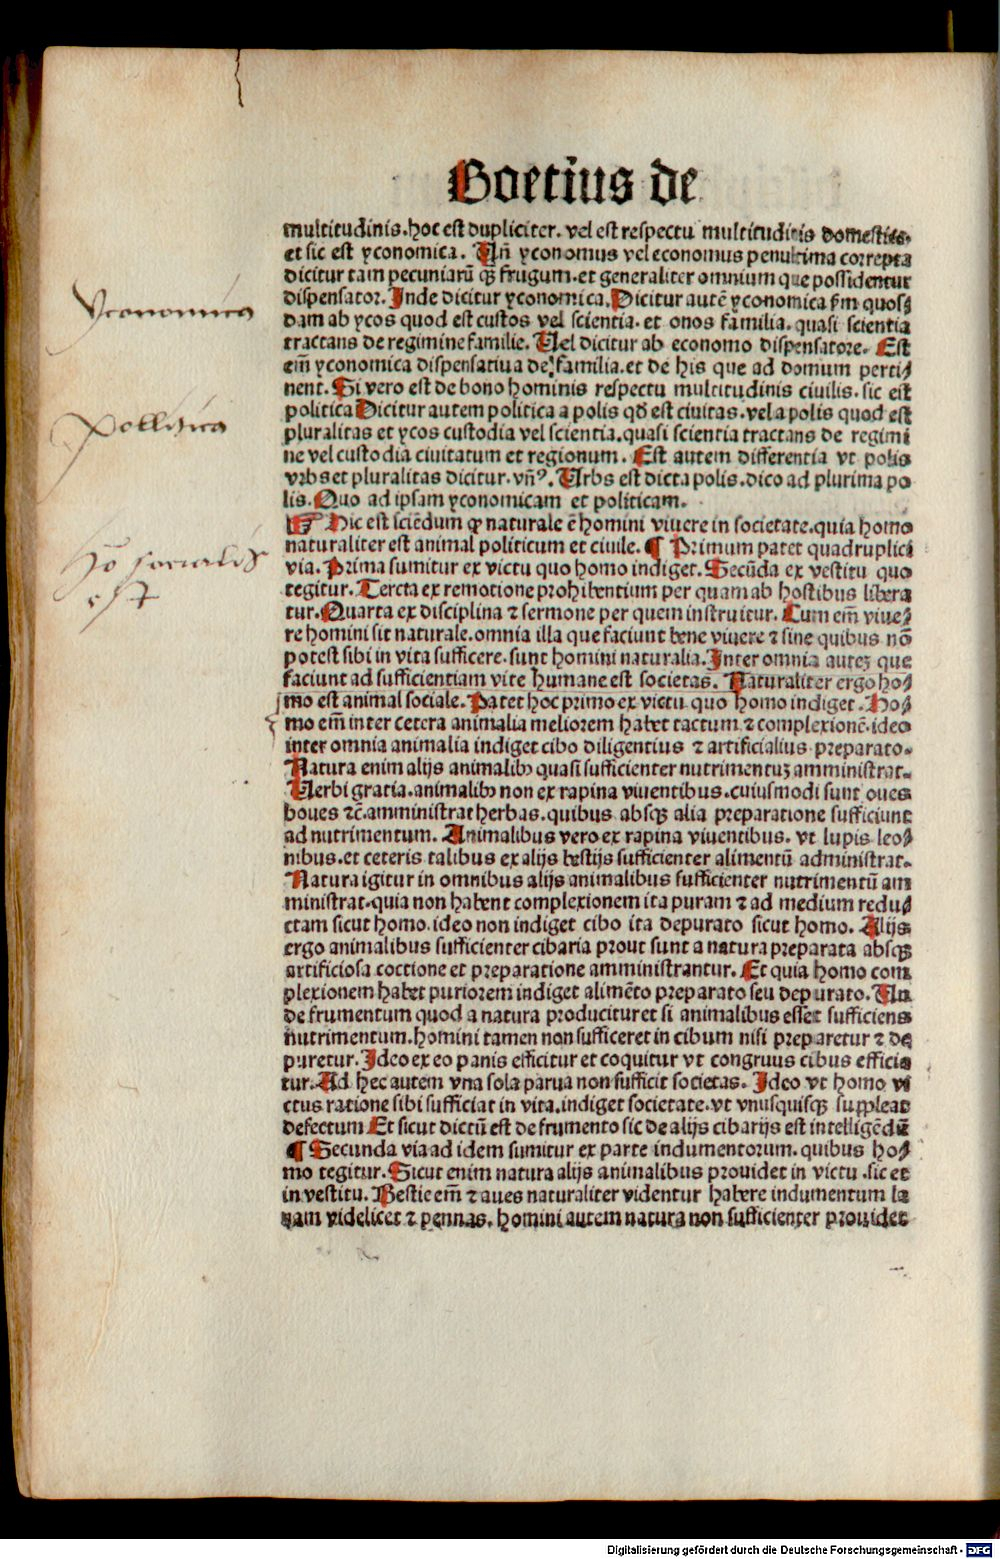 Boetius de
multitudinis. hoc est dupliciter. vel est respectu multitudinis domestice.
et sic est yconomica. Uñ yconomus vel economus penultima correpta
dicitur tam pecuniarū qȝ frugum. et generaliter omnium que possidentur
dispensator. Inde dicitur yconomica. Dicitur autē yconomica ẜm quos⸗
dam ab ycos quod est custos vel scientia. et onos familia. quasi scientia
tractans de regimine familie. Uel dicitur ab economo dispensatore. Est
em̄ yconomica dispensatiua de familia. et de his que ad domum perti⸗
nent. Si vero est de bono hominis respectu multitudinis ciuilis. sic est
politica Dicitur autem politica a polis qđ est ciuitas. vel a polis quod est
pluralitas et ycos custodia vel scientia. quasi scientia tractans de regimi
ne vel custodia ciuitatum et regionum. Est autem differentia vt polis
vrbs et pluralitas dicitur. vñꝰ. Urbs est dicta polis. dico ad plurima po
lis. Quo ad ipsam yconomicam et politicam.
☞ Hic est sciēdum ꝙ naturale ē homini viuere in societate. quia homo
naturaliter est animal politicum et ciuile. ¶ Primum patet quadruplici
via. Prima sumitur ex victu quo homo indiget. Secūda ex vestitu quo
tegitur. Tercta ex remotione prohibentium per quam ab hostibus libera
tur. Quarta ex disciplina ⁊ sermone per quem instruitur. Cum em̄ viue⸗
re homini sit naturale. omnia illa que faciunt bene viuere ⁊ sine quibus nō
potest sibi in vita sufficere. sunt homini naturalia. Inter omnia auteȝ que
faciunt ad sufficientiam vite humane est societas. Naturaliter ergo ho⸗
mo est animal sociale. Patet hoc primo ex victu quo homo indiget. Ho⸗
mo em̄ inter cetera animalia meliorem habet tactum ⁊ complexionē. ideo
inter omnia animalia indiget cibo diligentius ⁊ artificialius preparato.
Natura enim alijs animalibꝫ quasi sufficienter nutrimentuȝ amministrat.
Uerbi gratia. animalibꝫ non ex rapina viuentibus. cuiusmodi sunt oues
boues ⁊c̄. amministrat herbas. quibus absqȝ alia preparatione sufficiunt
ad nutrimentum. Animalibus vero ex rapina viuentibus. vt lupis leo⸗
nibus. et ceteris talibus ex alijs bestijs sufficienter alimentū administrat.
Natura igitur in omnibus alijs animalibus sufficienter nutrimentū am
ministrat. quia non habent complexionem ita puram ⁊ ad medium redu⸗
ctam sicut homo. ideo non indiget cibo ita depurato sicut homo. Alijs
ergo animalibus sufficienter cibaria prout sunt a natura preparata absqȝ
artificiosa coctione et preparatione amministrantur. Et quia homo com
plexionem habet puriorem indiget alimēto preparato seu depurato. Un
de frumentum quod a natura producitur et si animalibus esset sufficiens
nutrimentum. homini tamen non sufficeret in cibum nisi preparetur ⁊ de
puretur. Ideo ex eo panis efficitur et coquitur vt congruus cibus efficia
tur. Ad hec autem vna sola parua non sufficit societas. Ideo vt homo vi
ctus ratione sibi sufficiat in vita. indiget societate. vt vnusquisqȝ suppleat
defectum Et sicut dictū est de frumento sic de alijs cibarijs est intelligēdū
¶ Secunda via ad idem sumitur ex parte indumentorum. quibus ho⸗
mo tegitur. Sicut enim natura alijs animalibus prouidet in victu. sic et
in vestitu. Bestie em̄ ⁊ aues naturaliter videntur habere indumentum la
nam videlicet ⁊ pennas. homini autem natura non sufficienter prouidet
Yconomica
Pollitica
Hō socialis
est
Digitalisierung gefördert durch die Deutsche Forschungsgemeinschaft - DFG